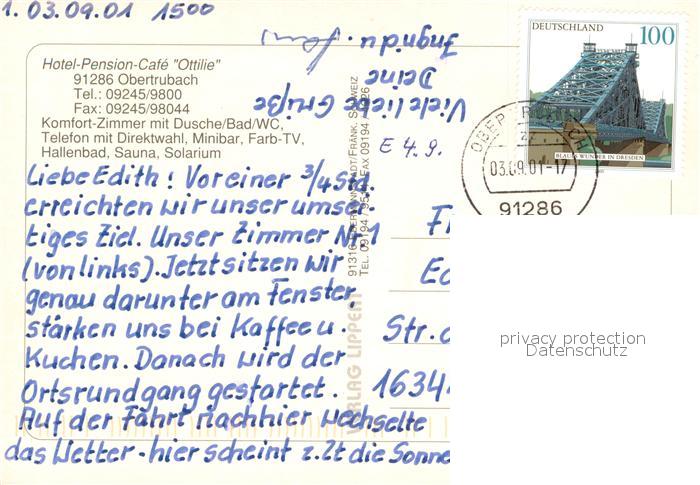 1. 03.09.01 1500
Hotel-Pension-Café "Ottilie"
91286 Obertrubach
Tel.: 09245/9800
Fax: 09245/98044
Komfort-Zimmer mit Dusche/Bad/WC,
Telefon mit Direktwahl, Minibar, Farb-TV,
Hallenbad, Sauna, Solarium
Liebe Edith! Vor einer 3/4 Std.
erreichten wir unser
tiges Ziel. Unser Zimmer Nr 1
(von links). Jetzt sitzen wir
genau darunter am Fenster,
stärken uns bei Kaffee u.
Kuchen. Danach wird der
Ortsrundgang gestartet.
Auf der Fahrt nach hier wechselte
das Wetter - hier scheint z.Zt die Sonne
Viele liebe Grüße
Deine
E 4.9.
VERLAG LIPPERT
DEUTSCHLAND 100
BLAUES WUNDER IN DRESDEN
03.09.01-17
91286
Str.
1634
privacy protection
Datenschutz